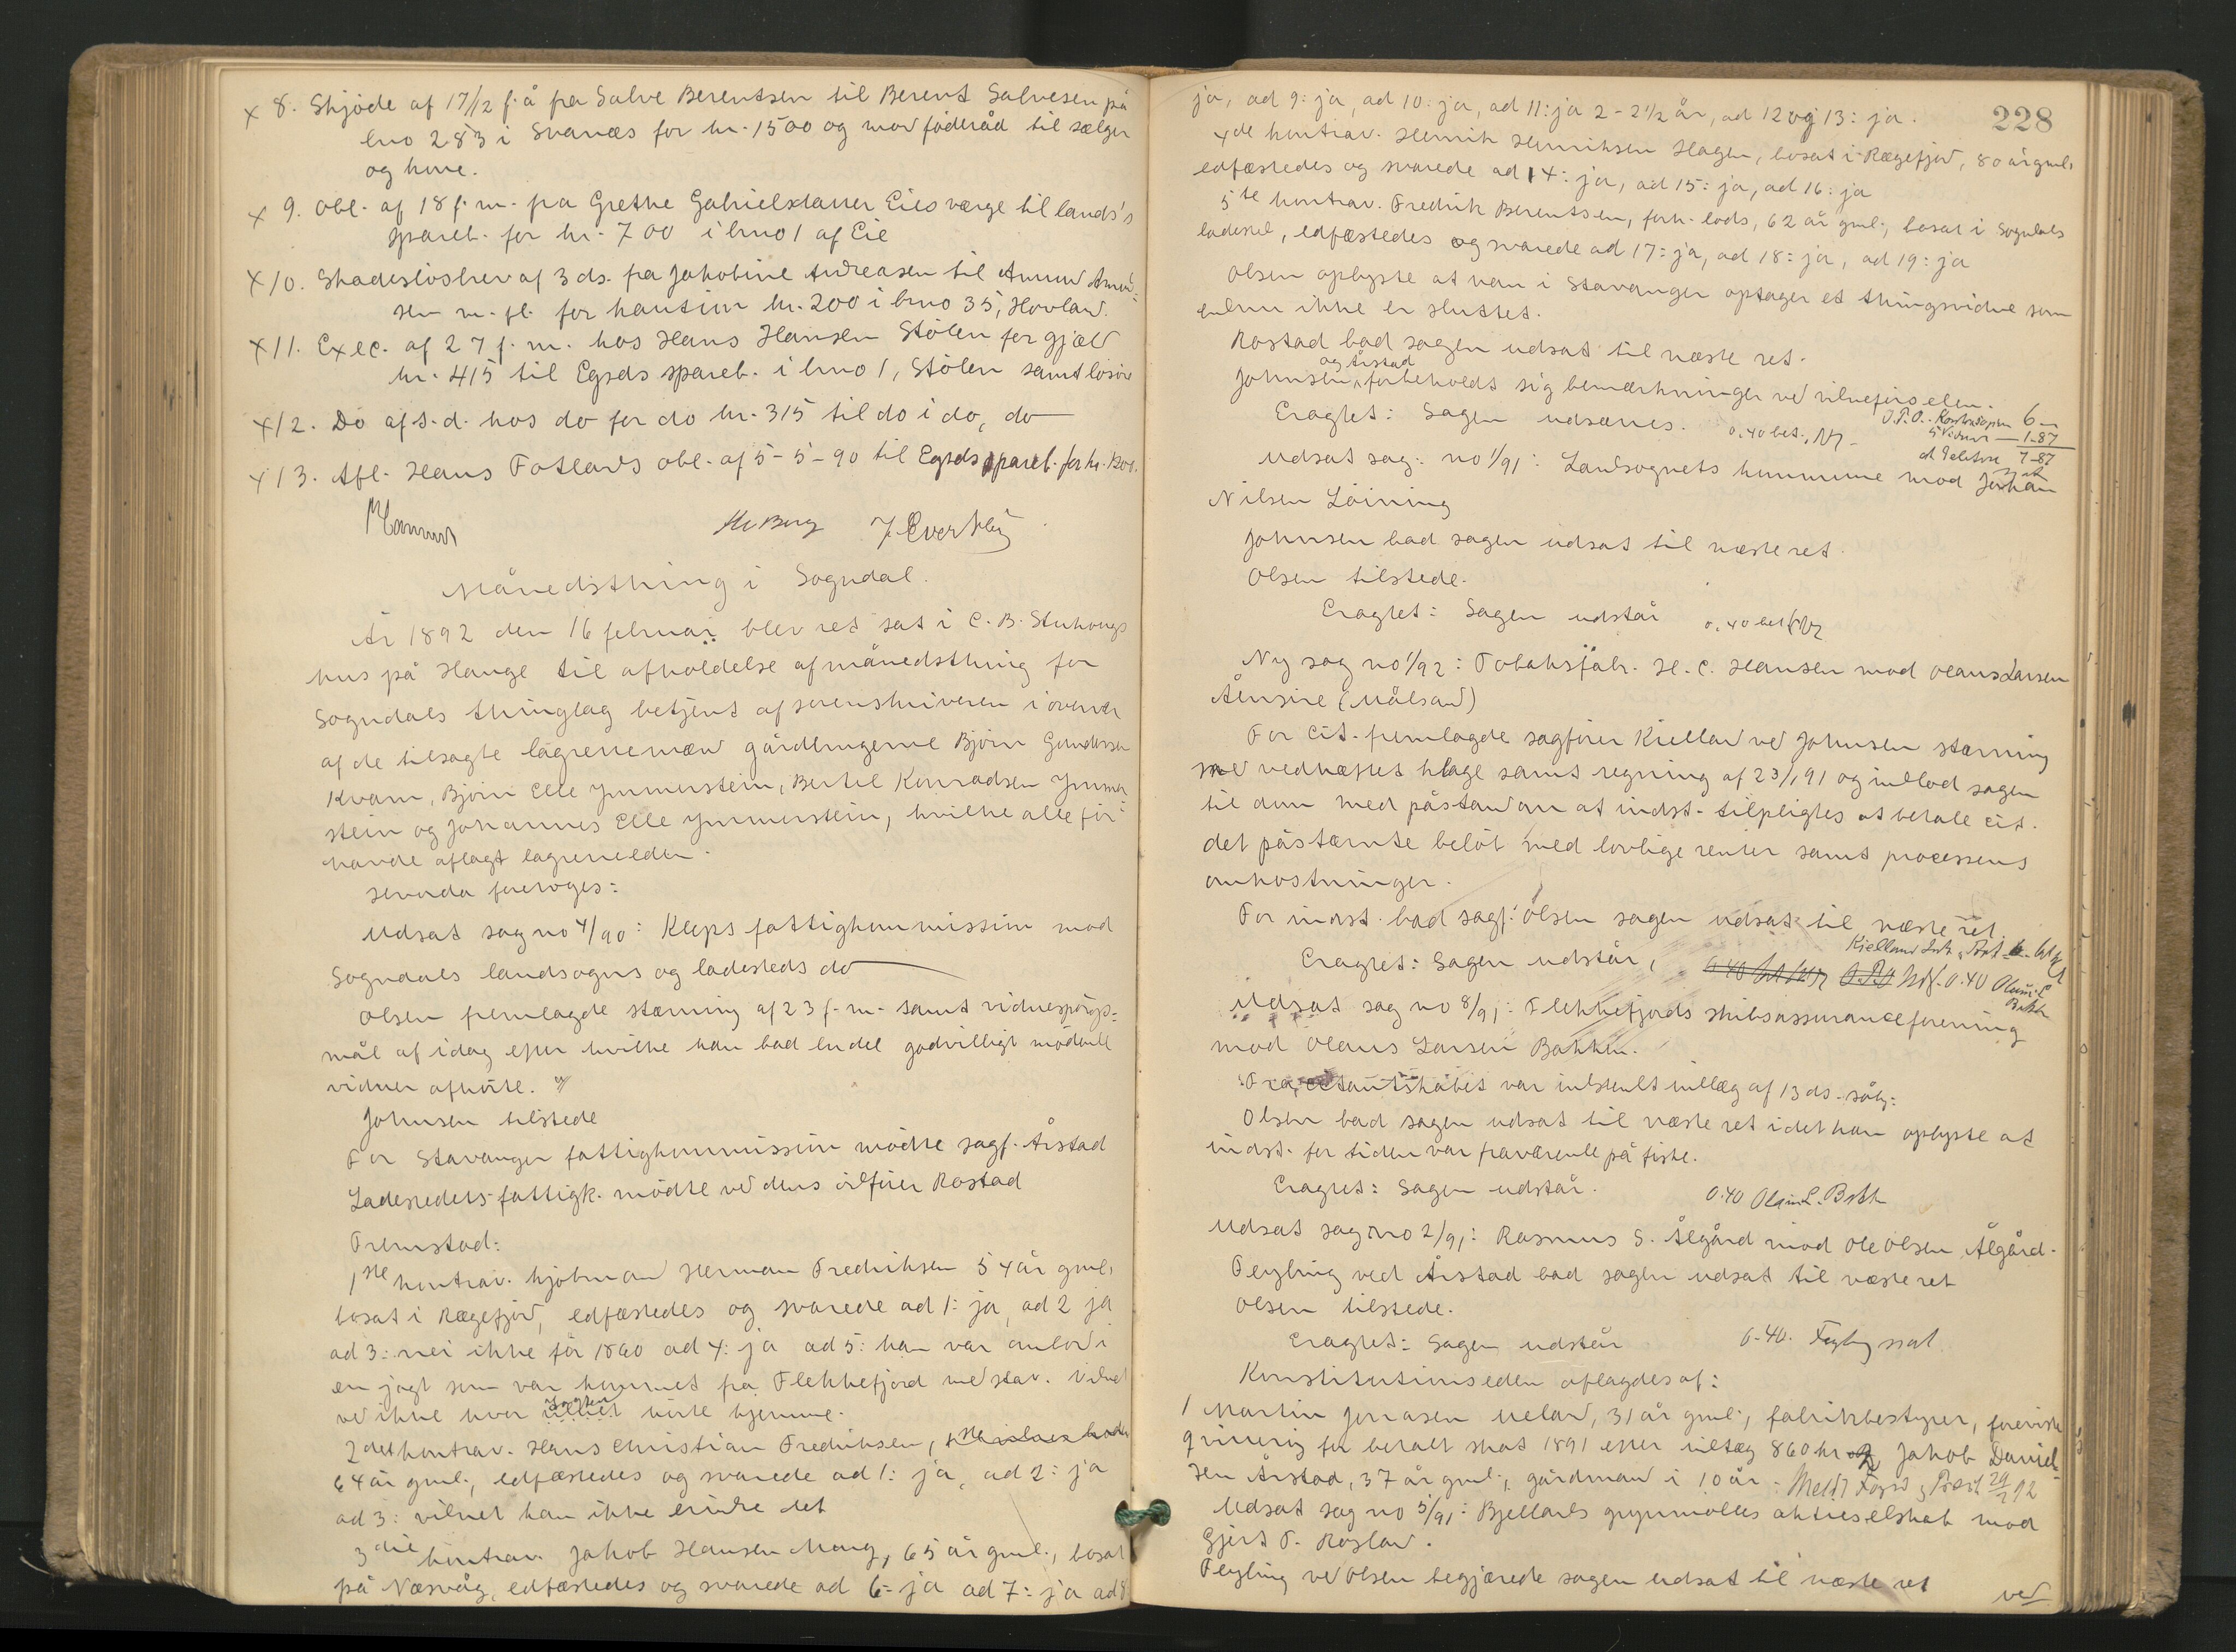 x 8. Skjöde af 17/12 f. å fra Salve Berentsen til Berent Salvesen på
bno 283 i Svanæs for kr. 1500 og mod föderåd til sælger
og hme.
x 9. Obl. af 18 f. m. fra Grethe Gabrielsdatter Eies værge til lands's
spareb. for kr. 700 i bno 1 af Eie
x 10. Skadeslösbrev af 3 ds. fra Jakobine Andreasen til Amund Amund-
sen m. fl. for kaution kr. 200 i bno 35, Hovland.
x 11. Exec. af 27 f. m. hos Hans Hansen Stölen for gjæld
kr. 415 til Egsds spareb. i bno 1, Stölen samt lösöre
x 12. Do af s. d. hos do for do kr. 315 til do i do, do
x 13. Afl. Hans Fotlands obl. af 5-5-90 til Egsds spareb. for kr. 1200.
Månedsthing i Sogndal.
År 1892 den 16 februar blev ret sat i C. B. Stuhougs
hus på Hauge til afholdelse af månedsthing for
Sogndals thinglag betjent af sorenskriveren i overvær
af de tilsagte lagrettemænd gårdbrugerne Björn Gundersen
Kvam, Björn Elle Ymmerstein, Bertel Konradsen Ymmer
stein og Johannes Elle Ymmerstein, hvilke alle för
havde aflagt lagretteeden.
Hvorda foretoges:
Udsat sag no 4/90: Kleps fattigkommission mod
Sogndals landsogns og ladesteds do
Olsen fremlagde stævning af 23 f. m. samt vidnespörgs-
mål af idag efter hvilke han bad endel godvilligt mödende
vidner afhörte.
Johnsen tilstede
For Stavanger fattigkommission mödte sagf. Årstad
Ladestedets fattigk. mödte ved dens ordförer Rostad
Fremstod:
1ste kontrav. kjöbmand Herman Fredriksen 54 år gml.
bosat i Rægefjord, edfæstedes og svarede ad 1: ja, ad 2 ja
ad 3: nei ikke för 1860 ad 4: ja ad 5: han var ombord i
en jagt som var kommet fra Flekkefjord med stav. Vidnet
ved ikke hvor jagten hørte hjemme.
2det kontrav. Hans Christian Fredriksen,
64 år gml., edfæstedes og svarede ad 1: ja, ad 2: ja
ad 3: vidnet kan ikke erindre det
3die kontrav. Jakob Hansen Maug, 65 år gml., bosat
på Næsvåg, edfæstedes og svarede ad 6: ja ad 7: ja ad 8
228
ja, ad 9: ja, ad 10: ja, ad 11: ja 2 - 2 1/2 år, ad 12 og 13: ja.
4de kontrav. Henrik Henriksen Hagen, bosat i Rægefjord, 80 år gml.
edfæstedes og svarede ad 14: ja, ad 15: ja, ad 16: ja
5te kontrav. Fredrik Berentsen, forh. lods, 62 år gml., bosat i Sogndals
ladested, edfæstedes og svarede ad 17: ja, ad 18: ja, ad 19: ja
Olsen oplyste at han i Stavanger optager et thingsvidne som
endnu ikke er sluttet.
Rostad bad sagen udsat til næste ret.
og Årstad
Johnsen forbeholdt sig bemærkninger ved vidneförselen.
Eragtet: Sagen udsættes. 0.40 bet.
6 -
5 Vidner - 1-87
7-87
Udsat sag: no 1/91: Landsognets kommune mod Johan
Nilsen Löining
Johnsen bad sagen udsat til næste ret.
Olsen tilstede.
Eragtet: Sagen udstår 0.40 bet
Ny sag no 1/92: Tobaksfabr. H. C. Hansen mod Olaus Larsen
Åensire (Målsand)
For cit. fremlagde sagförer Kielland ved Johnsen stævning
med vedhæftet klage samt regning af 23/1 91 og indlod sagen
til dom med påstand om at indst. tilpligtes at betale cit.
det påstævnte belöb med lovlige renter samt processens
omkostninger.
For indst. bad sagf. Olsen sagen udsat til næste ret.
Eragtet: Sagen udstår,
Udsat sag no 8/91: Flekkefjords skibsassuranceforening
mod Olaus Larsen Bakken.
Fra citantskabet var indsendt indlæg af 13 ds. såly:
Olsen bad sagen udsat til næste ret idet han oplyste at
indst. for tiden var fraværende på fiske.
Eragtet: Sagen udstår. 0.40
Udsat sag no 2/91: Rasmus S. Ålgård mod Ole Olsen Ålgård.
Feyling ved Årstad bad sagen udsat til næste ret
Olsen tilstede.
Eragtet: Sagen udstår 0.40.
Konstitutionseden aflagdes af:
1 Martin Jonasen Ueland, 31 år gml., fabrikbestyrer, foreviste
qvittering for betalt skat 1891 efter indtæg 860 kr og Jakob David-
sen Årstad, 37 år gml., gårdmand i 10 år.
Udsat sag no 5/91: Bjellands grynmölles aktieselskab mod
Gjert T. Rosland.
Feyling ved Olsen begjærede sagen udsat til næste ret
ved